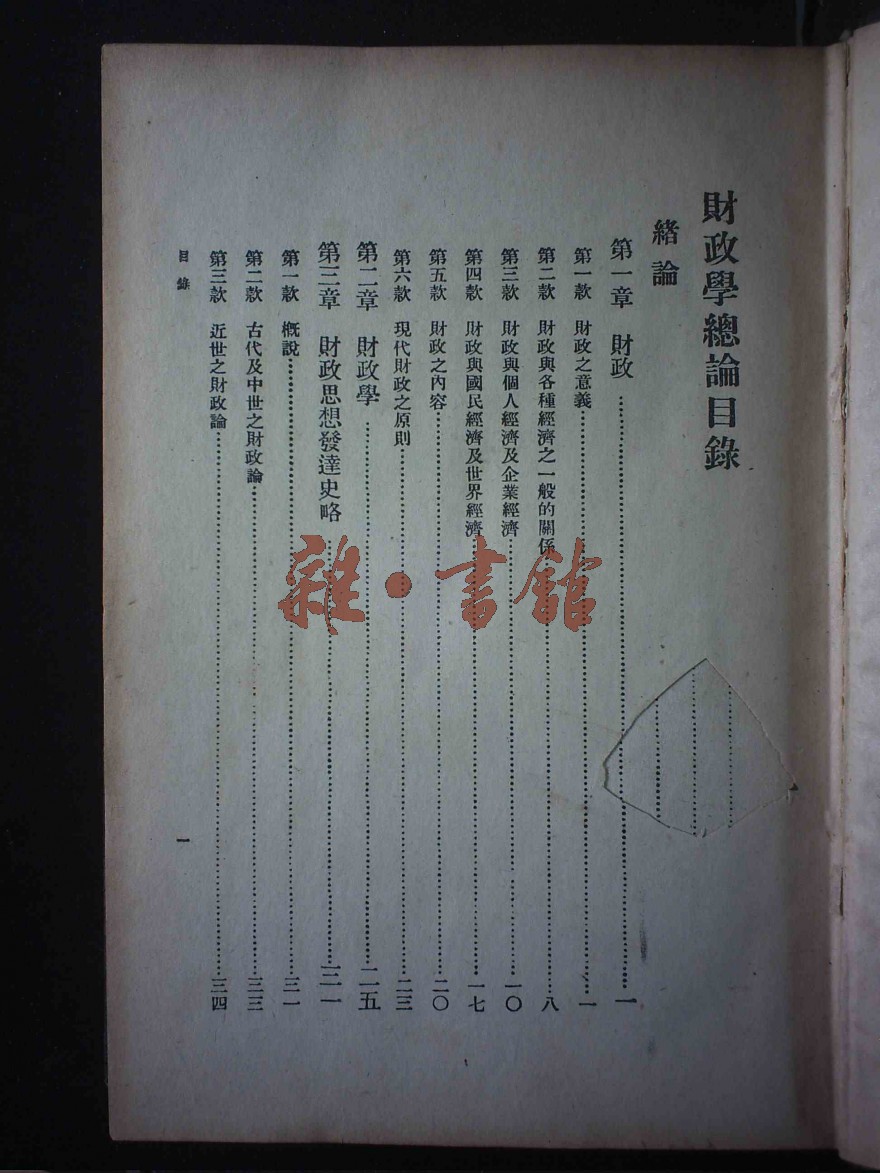 財政學總論目錄
緒論
第一章 財政……一
第一款 財政之意義……一
第二款 財政與各種經濟之一般的關係……八
第三款 財政與個人經濟及企業經濟……一〇
第四款 財政與國民經濟及世界經濟……一七
第五款 財政之內容……二〇
第六款 現代財政之原則……二三
第二章 財政學……二五
第三章 財政思想發達史略……三一
第一款 槪說……三一
第二款 古代及中世之財政論……三三
第三款 近世之財政論……三四
目錄 一
雜·書館